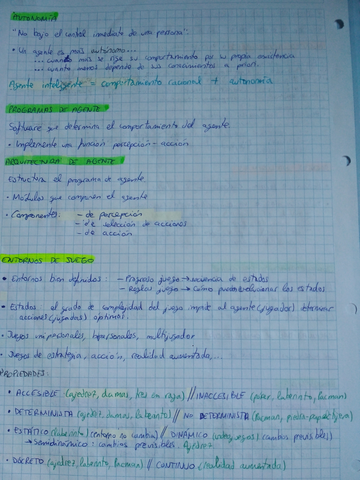 AUTONOMÍA
"No bajo el control inmediato de una persona".
• Un agente es más autónomo...
... cuanto más se rige su comportamiento por su propia experiencia
... cuanto menos depende de sus conocimientos a priori.
Agente inteligente = comportamiento racional + autonomía
PROGRAMAS DE AGENTE:
Software que determina el comportamiento del agente.
• Implementa una función percepción - acción
ARQUITECTURA DE AGENTE:
Estructura el programa de agente
• Módulos que componen el agente
• Componentes: - de percepción
- de selección de acciones
- de acción
ENTORNOS DE JUEGO
• Entornos bien definidos: - Progreso juego → secuencia de estados
- Reglas juego → cómo puedo evolucionar los estados
• Estados: el grado de complejidad del juego impide al agente (jugador) determinar
acciones (jugadas) óptimas.
• Juegos unipersonales, bipersonales, multijugador
• Juegos de estrategia, acción, realidad aumentada,...
PROPIEDADES:
• ACCESIBLE (ajedrez, damas, tres en raya) // INACCESIBLE (poker, laberinto, pacman)
• DETERMINISTA (ajedrez, damas, laberinto) // NO DETERMINISTA (Pacman, piedra-papel-tijera)
• ESTÁTICO (laberinto) // DINÁMICO (videojuegos) (cambios previsibles)
→ Semidinámico: cambios previsibles. Ajedrez
• DISCRETO (ajedrez, laberinto, pacman) // CONTINUO (realidad aumentada)